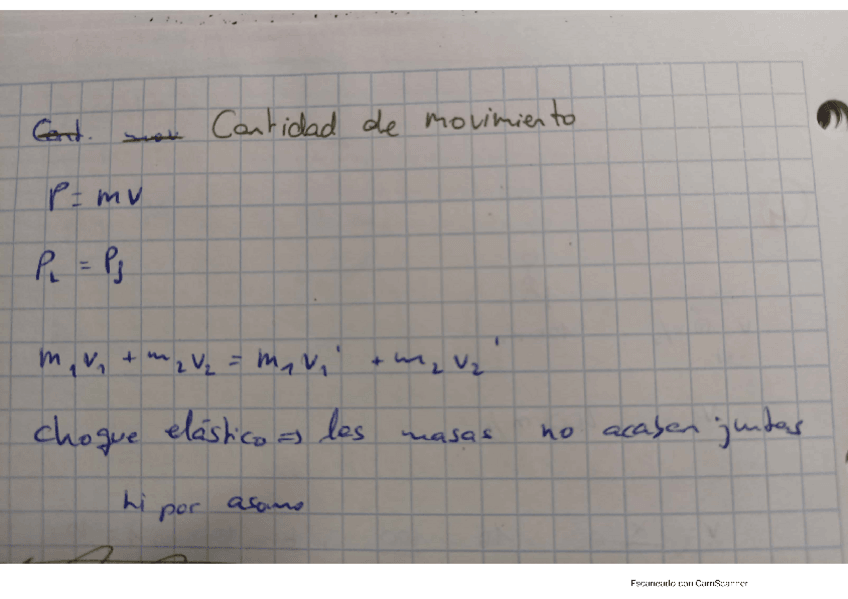 Cant. mov Cantidad de movimiento
P = mv
Pi = Pf
m1v1 + m2v2 = m1v1' + m2v2'
choque elástico => las masas no acaban juntas
ni por asomo
Escaneado con CamScanner